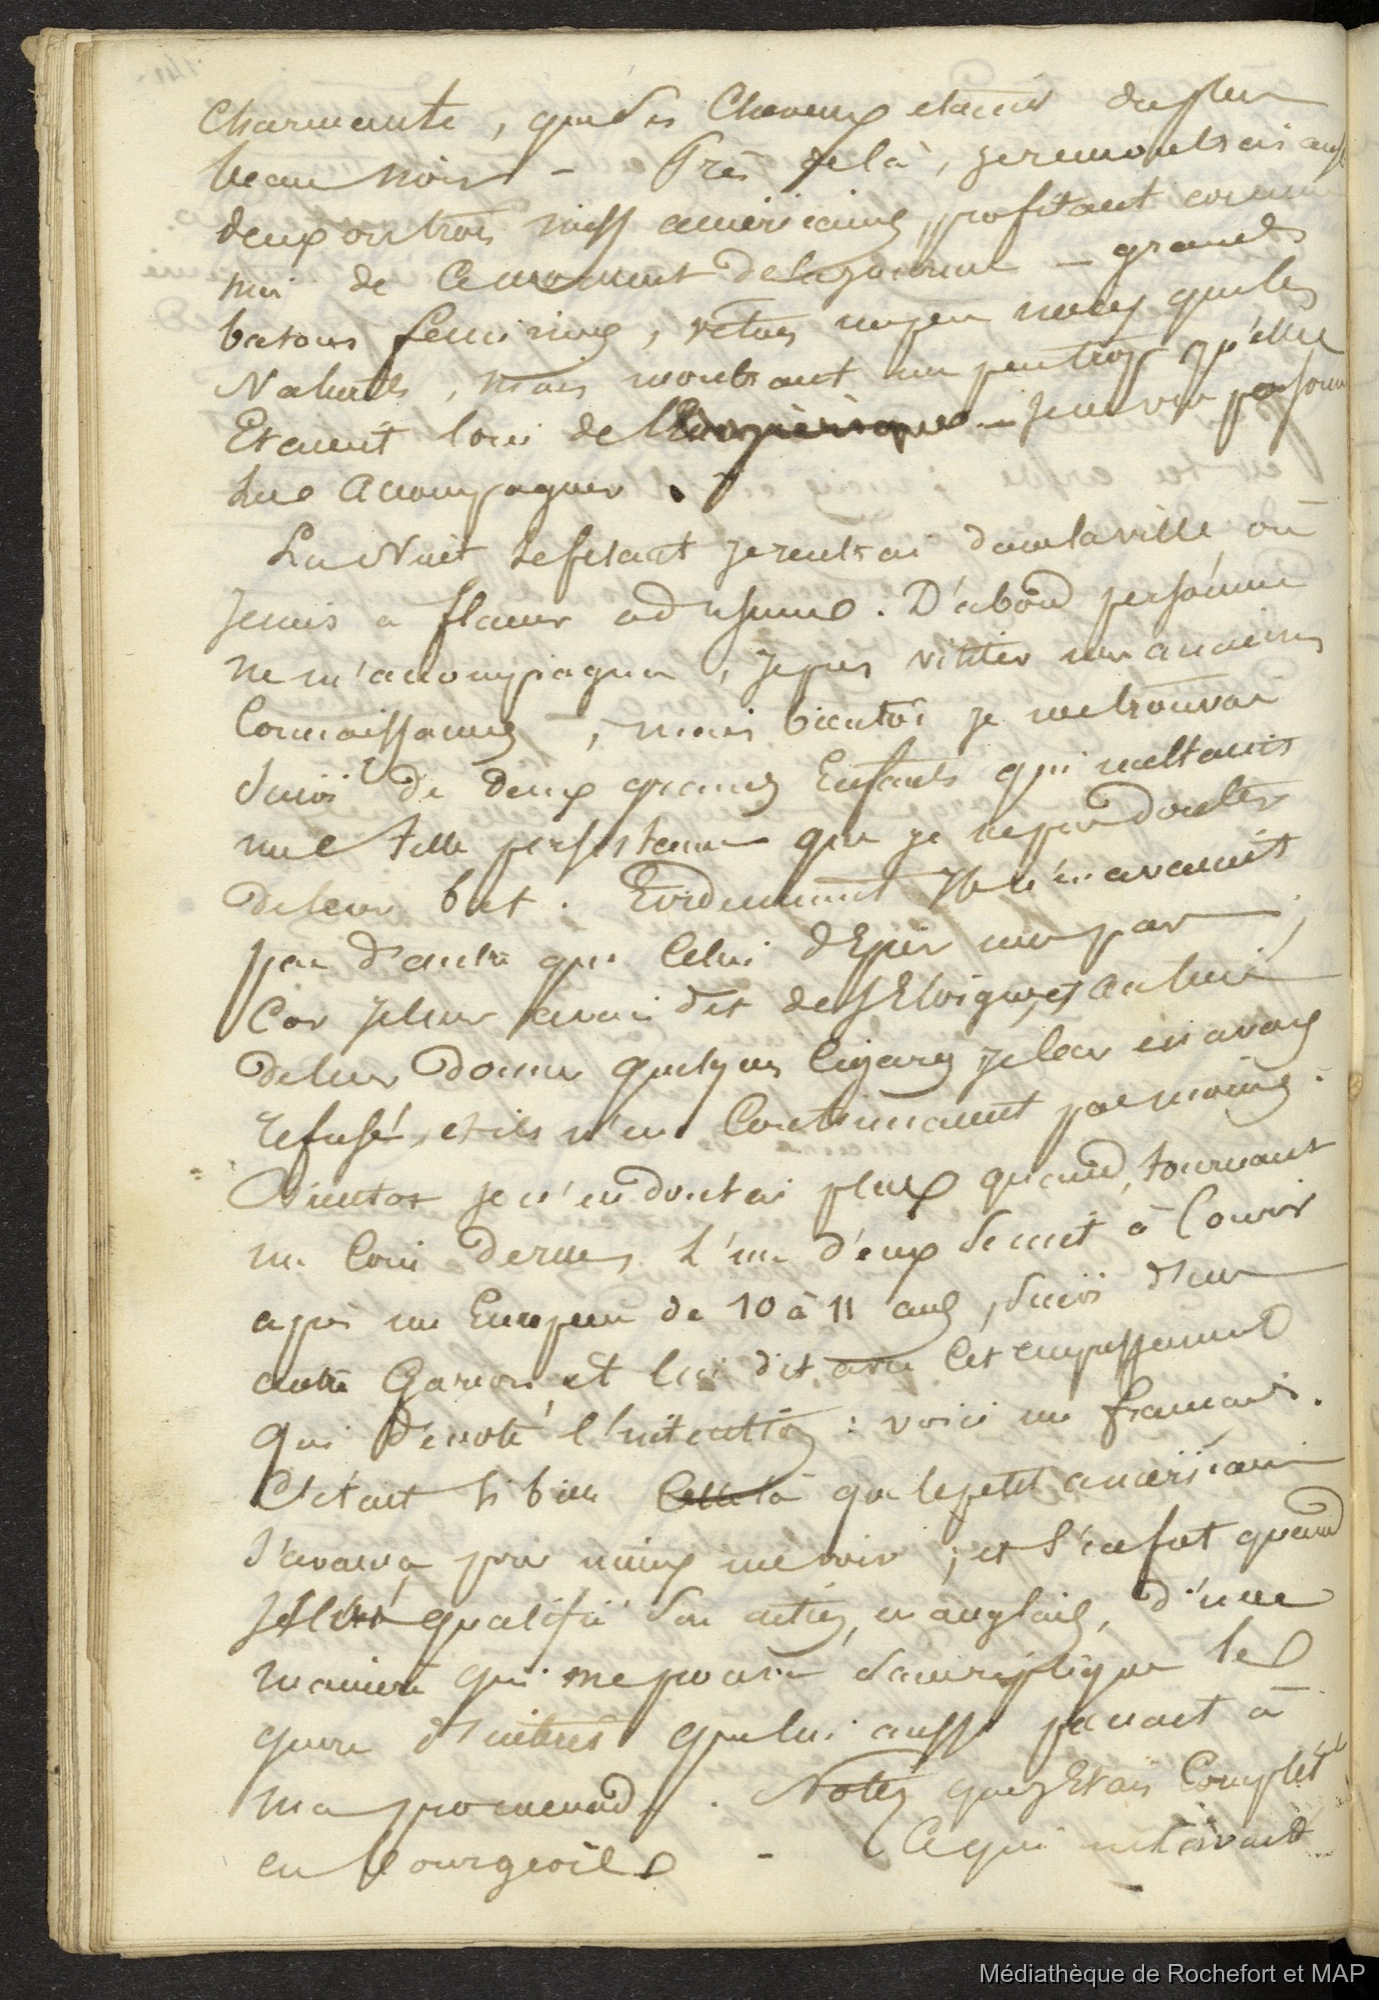 Charmante, que ses Cheveux etaient du plus
beau noir - Près de là, je rencontrais aussi
deux ou trois miss américaines, profitant comme
moi de Ce moment de la journée - grands
batons feminins, vêtues un peu mieux que les
Naturels, mais montrant un peu trop qu'elles
Etaient loin de - Je ne vis personne
les accompagner.
La Nuit se faisant je rentrai dans la ville où
Je mis à flaner . D'abord personne
ne m'accompagna, Je pus visiter mes anciennes
Connaissances, mais bientôt je me trouvai
Suivi de deux grands Enfants qui mettaient
une telle persistance que je ne pus douter
de leur but. Evidemment Ils n'en avaient
pas d'autre que Celui d'Epier mes pas,
Car Je leur avais dit de s'Eloigner, et au lieu
de leur donner quelques Cigares je leur en avais
refusé, et ils n'en Continuaient pas moins.
Bientôt je n'en doutai plus quand, tournant
un Coin de rue, l'un d'eux se mit à Courir
après un Européen de 10 à 11 ans, Suivi d'un
autre Garçon, et lui dit avec Cet empressement
qui dénote l'intention : voici un français.
C'était si bien que le petit américain
s'avança pour mieux me voir ; et s'enfuit quand
J'eus qualifié son métier, en anglais, d'une
manière qui me prouva sans réplique le
genre d'intérêt que lui aussi prenait à
ma promenade. Notez que j'Etais Complet
en bourgeois - Ce qui
Médiathèque de Rochefort et MAP